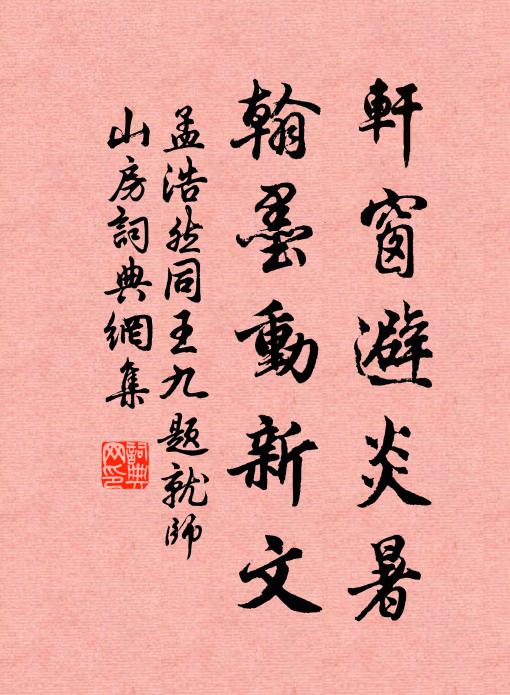 軒窗避炎暑
翰墨動新文
孟浩然同王九題就師
山房詞典網集
詞典網印